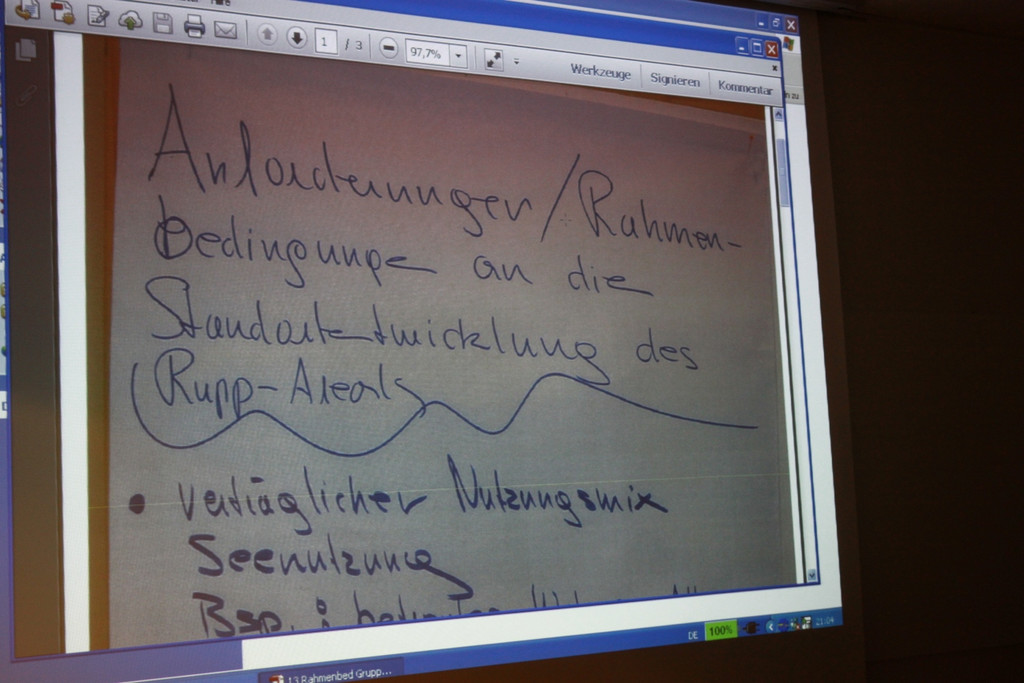 1 / 3
97,7%
Werkzeuge
Signieren
Kommentar
Anforderungen / Rahmen-
bedingunge an die
Standortentwicklung des
Rupp-Areals
• verträglicher Nutzungsmix
Seenutzung
Bsp. :
DE
100%
21:04
13 Rahmenbed Grupp...